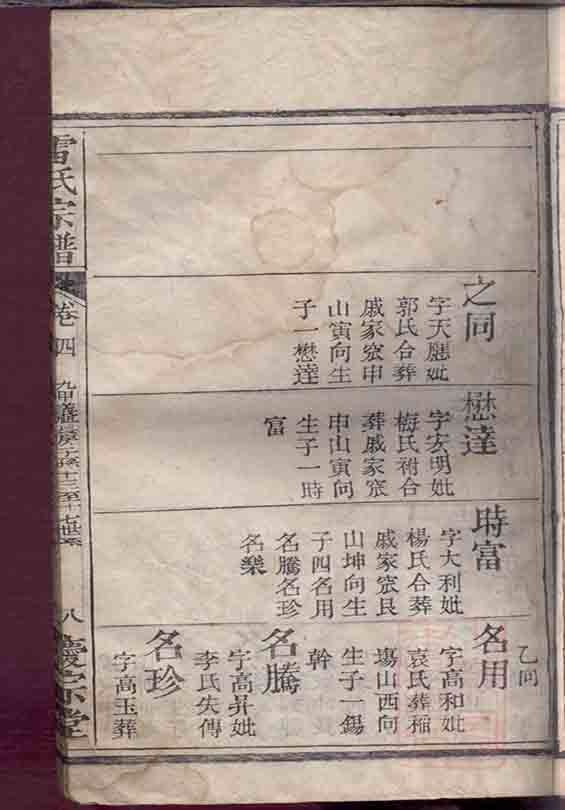 之同
字天應妣
郭氏合葬
戚家窊申
山寅向生
子一懋達
懋達
字安明妣
梅氏祔合
葬戚家窊
申山寅向
生子一時
富
時富
字大利妣
楊氏合葬
戚家窊艮
山坤向生
子四名用
名騰名珍
名樂
乙向
名用
字高和妣
袁氏葬稻
塲山西向
生子一錫
幹
名騰
字高昇妣
李氏失傳
名珍
字高玉葬
雷氏宗譜
卷四
十三至十
八
慶宗堂